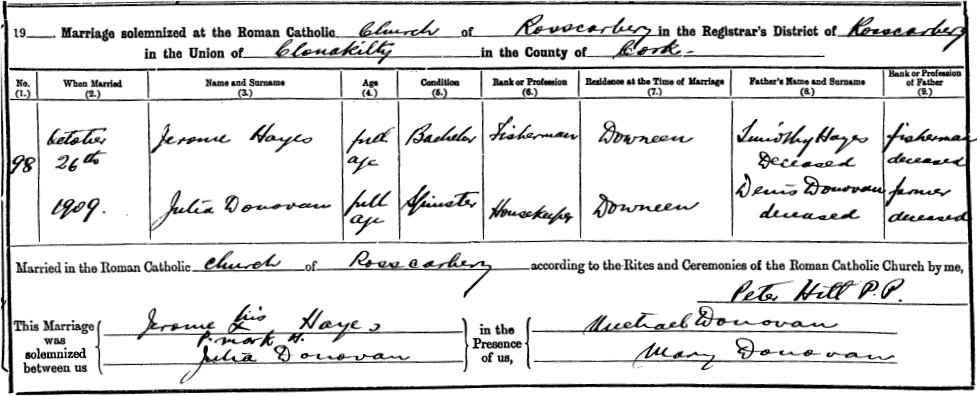 19 Marriage solemnized at the Roman Catholic Church of Rosscarbery in the Registrar's District of Rosscarbery
in the Union of Clonakilty in the County of Cork
No. (1.) When Married (2.) Name and Surname (3.) Age (4.) Condition (5.) Rank or Profession (6.) Residence at the Time of Marriage (7.) Father's Name and Surname (8.) Rank or Profession of Father (9.)
October Jerome Hayes full Bachelor Fisherman Downeen Timothy Hayes fisherman
98 26th age Deceased deceased
1909. Julia Donovan full Spinster Housekeeper Downeen Denis Donovan farmer
age deceased deceased
Married in the Roman Catholic church of Rosscarbery according to the Rites and Ceremonies of the Roman Catholic Church by me,
Peter Hill P.P.
This Marriage was solemnized between us
Jerome his X Hayes
P. mark H.
Julia Donovan
in the Presence of us,
Michael Donovan
Mary Donovan